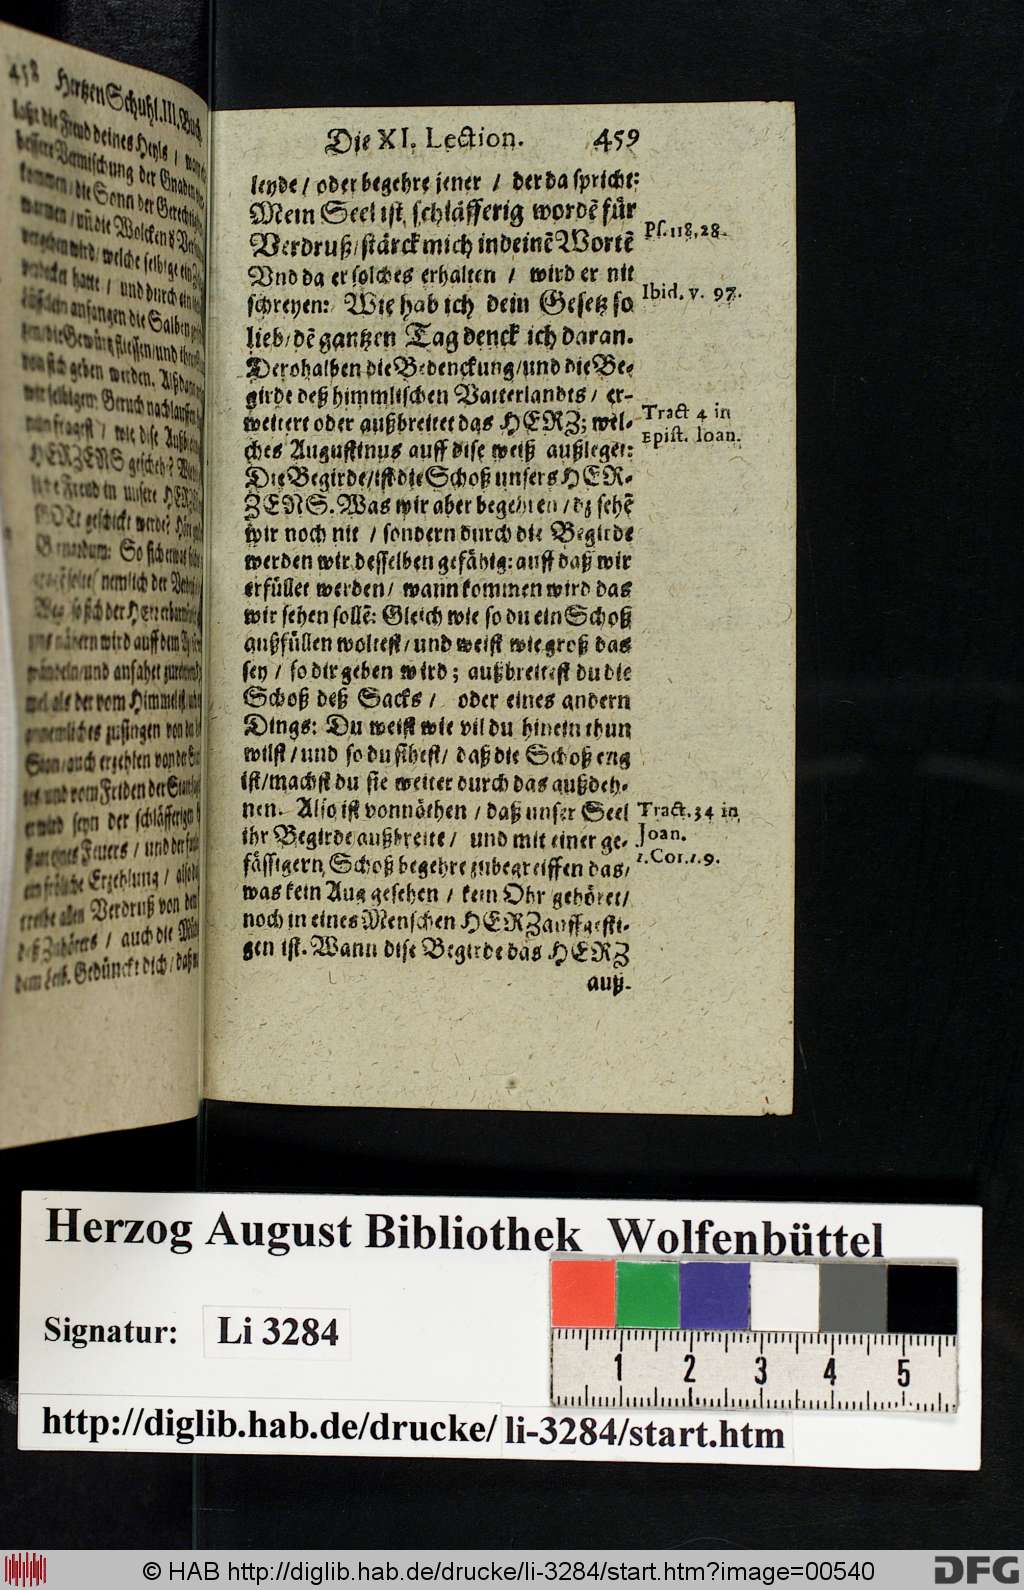 458 Hertzen Schuhl. III. Buch.
die Freud deines Heyls /
Vermischung der Gnaden
kommen / die Sonn der
die Wolcken
werden wird / welche selbige
hatte / und durch ein
anfangen die Salben
die Gewürtz fliessen / und
von sich geben werden.
Geruch nachlauffen
wie dise
HERZENS gescheh?
Freud in unsere HERZ
GOtt geschickt werde?
So sich
nemlich der
so sich der
wird auff dem
und anfahet
als der vom Himmel ist
zusingen von
auch erzehlen von der
und vom Friden der
wird seyn der schläfferigen
Feuers / und der
fröliche Erzehlung /
allen Verdruß von dem
deß Zuhörers / auch die
dem Leib. Gedünckt dich / daß
Die XI. Lection. 459
leyde / oder begehre jener / der da spricht:
Mein Seel ist schläfferig wordē für
Verdruß / stärck mich in deinē Wortē
Vnd da er solches erhalten / wird er nit
schreyen: Wie hab ich dein Gesetz so
lieb / dē gantzen Tag denck ich daran.
Derohalben die Bedenckung / und die Be-
girde deß himmlischen Vatterlandts / er-
weitert oder außbreitet das HERZ; wel-
ches Augustinus auff dise weiß außleget:
Die Begirde / ist die Schoß unsers HER-
ZENS. Was wir aber begehren / dz sehē
wir noch nit / sondern durch die Begirde
werden wir desselben gefähig: auff daß wir
erfüllet werden / wann kommen wird das
wir sehen sollē: Gleich wie so du ein Schoß
außfüllen woltest / und weist wie groß das
sey / so dir geben wird; außbreitest du die
Schoß deß Sacks / oder eines andern
Dings: Du weist wie vil du hinein thun
wilst / und so du sihest / daß die Schoß eng
ist / machst du sie weiter durch das außdeh-
nen. Also ist vonnöthen / daß unser Seel
ihr Begirde außbreite / und mit einer ge-
fässigern Schoß begehre zubegreiffen das /
was kein Aug gesehen / kein Ohr gehöret /
noch in eines Menschen HERZ auffgesti-
gen ist. Wann dise Begirde das HERZ
auß-
Ps. 118, 28.
Ibid. v. 97.
Tract 4 in
Epist. Ioan.
Tract. 34 in
Joan.
1. Cor. 2. 9.
Herzog August Bibliothek Wolfenbüttel
Signatur: Li 3284
1 2 3 4 5
http://diglib.hab.de/drucke/ li-3284/start.htm
© HAB http://diglib.hab.de/drucke/li-3284/start.htm?image=00540
DFG